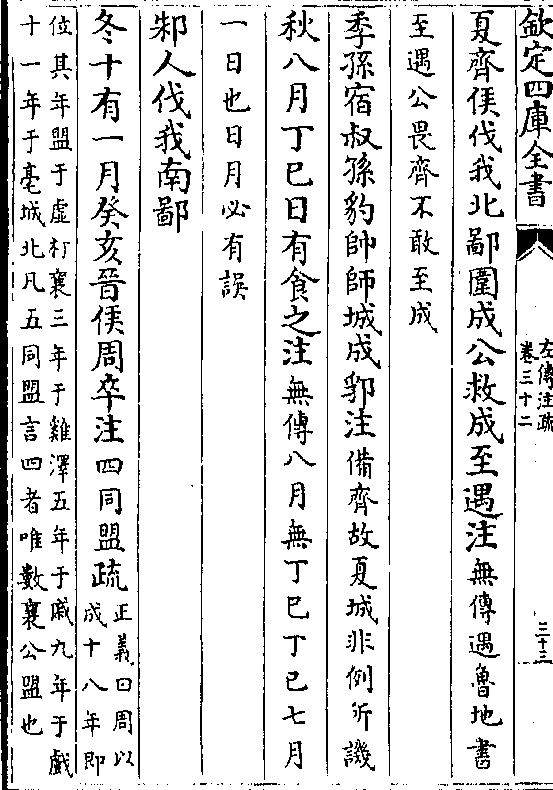 欽定四庫全書
左傳注疏
卷三十二
三十三
夏齊侯伐我北鄙圍成公救成至遇注無傳遇魯地書
至遇公畏齊不敢至成
季孫宿叔孫豹帥師城成郛注備齊故夏城非例所譏
秋八月丁巳日有食之注無傳八月無丁巳丁巳七月
一日也日月必有誤
邾人伐我南鄙
冬十有一月癸亥晉侯周卒注四同盟疏正義曰周以
成十八年即
位其年盟于虚朾襄三年于雞澤五年于戚九年于戲
十一年于亳城北凡五同盟言四者唯數襄公盟也